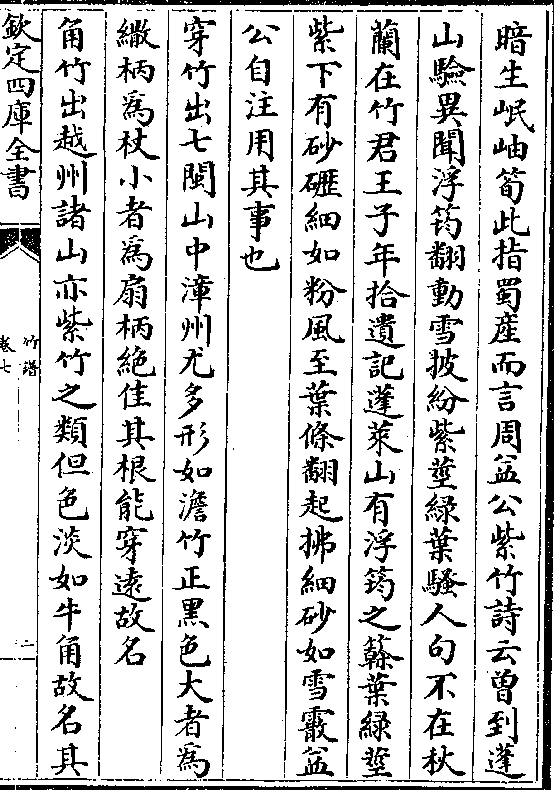 暗生岷岫筍此指蜀産而言周益公紫竹詩云曾到蓬
山驗異聞浮筠翻動雪披紛紫莖緑葉騷人句不在秋
蘭在竹君王子年拾遺記蓬萊山有浮筠之簳葉緑莖
紫下有砂礰細如粉風至葉條翻起拂細砂如雪霰益
公自注用其事也
穿竹出七閩山中漳州尤多形如澹竹正黒色大者為
繖柄為杖小者為扇柄絶佳其根能穿逺故名
角竹出越州諸山亦紫竹之類但色淡如牛角故名其
欽定四庫全書
竹譜
卷七
二